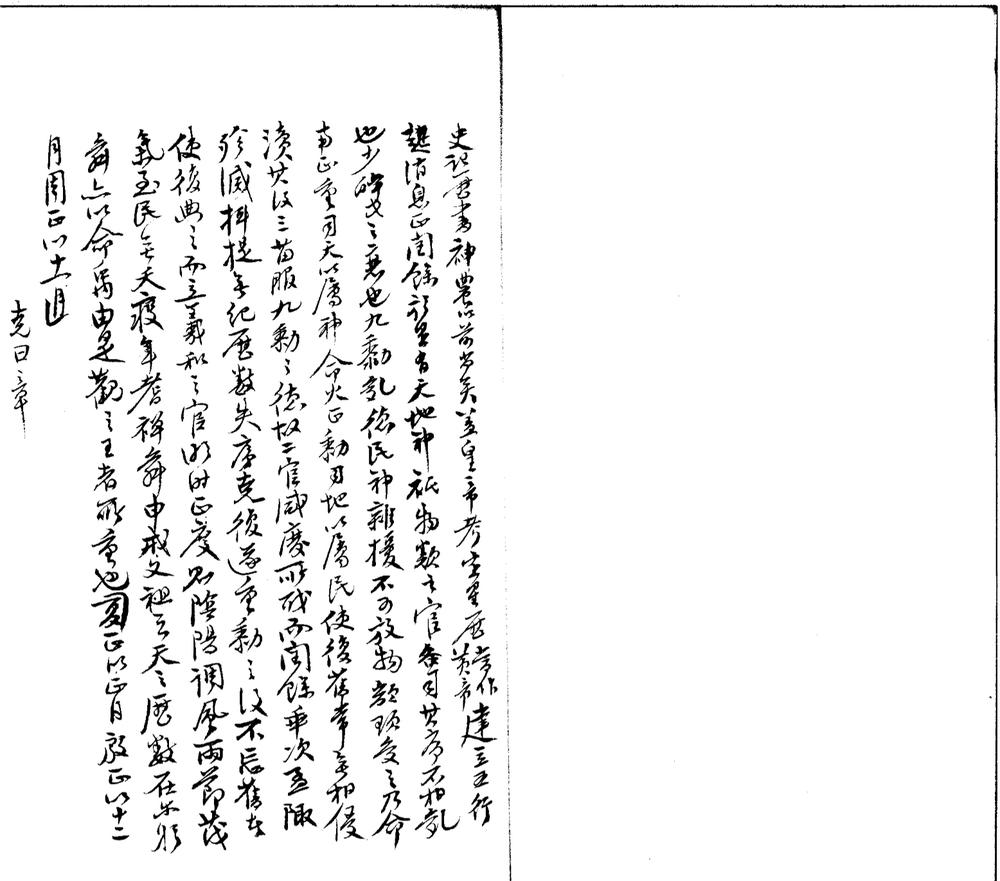 史記歴書神農以前尚矣盖皇帝考定星歴當作黄帝建立五行
起消息正閏餘於是有天地神祇物類之官各司其序不相乱
也少皞氏之衰也九黎乱徳民神雑擾不可放物顓頊受之乃命
南正重司天以属神命火正黎司地以属民使復舊常無相侵
瀆其後三苗服九黎之徳故二官咸廢所職而閏餘乖次孟陬
殄滅摂提無紀歴数失序堯復遂重黎之後不忘舊者
使復典之而立羲和之官明時正度則陰陽調風雨節茂
氣至民無夭疫年耆禅舜申戒文祖云天之歴数在尔躬
舜亦以命禹由是觀之王者所重也夏正以正月殷正以十二
月周正以十一月
堯曰章